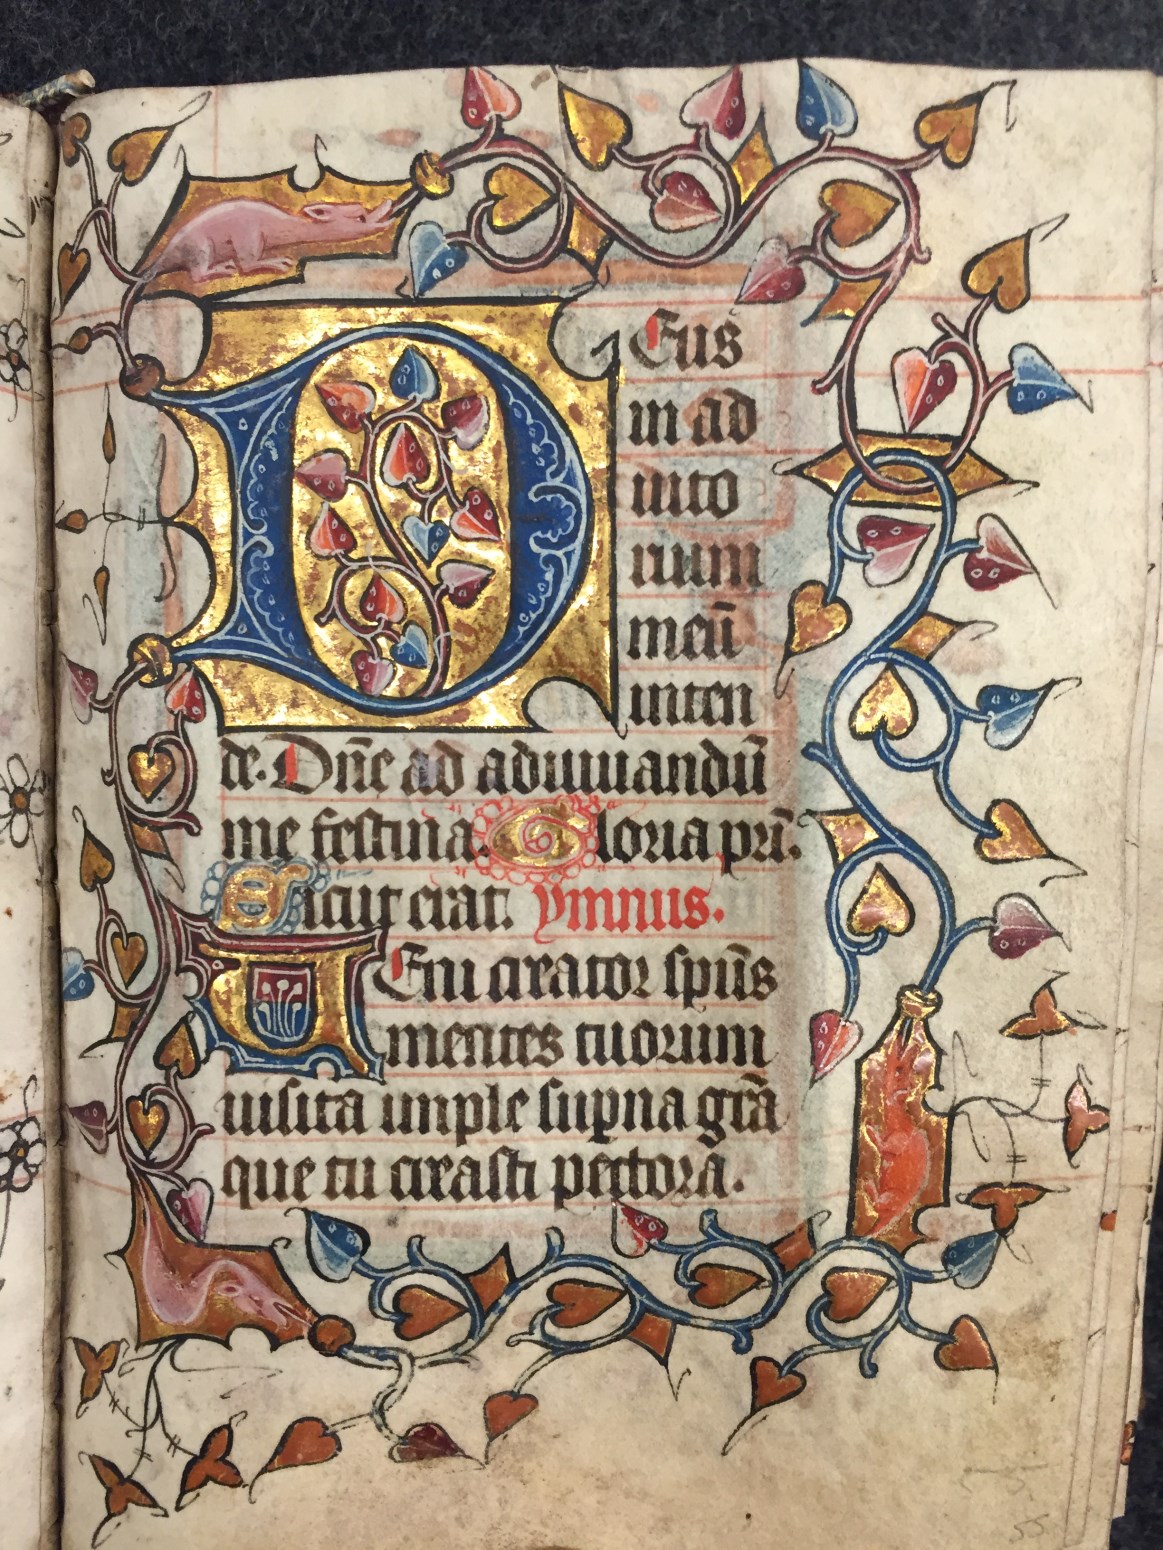 DEus
in ad
iuto
rium
meū
inten
de. Dn̄e ad adiuuandū
me festina. Gloria pr̄i.
Sicut erat. ymnus.
UEni creator sp̄us
mentes tuorum
uisita imple sup̄na gr̄a
que tu creasti pectora.
55